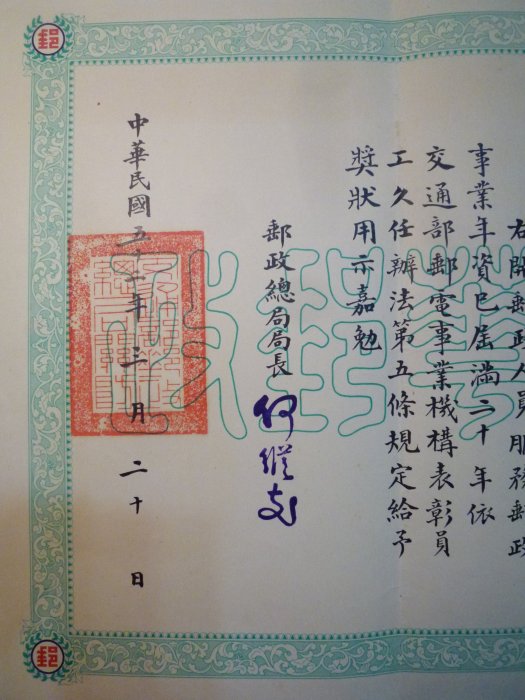 右開郵政人員服務郵政
事業年資已屆滿二十年依
交通部郵電事業機構表彰員
工久任辦法第五條規定給予
獎狀用示嘉勉
郵政總局局長
何縱炎
中華民國五十一年三月二十日
郵
郵